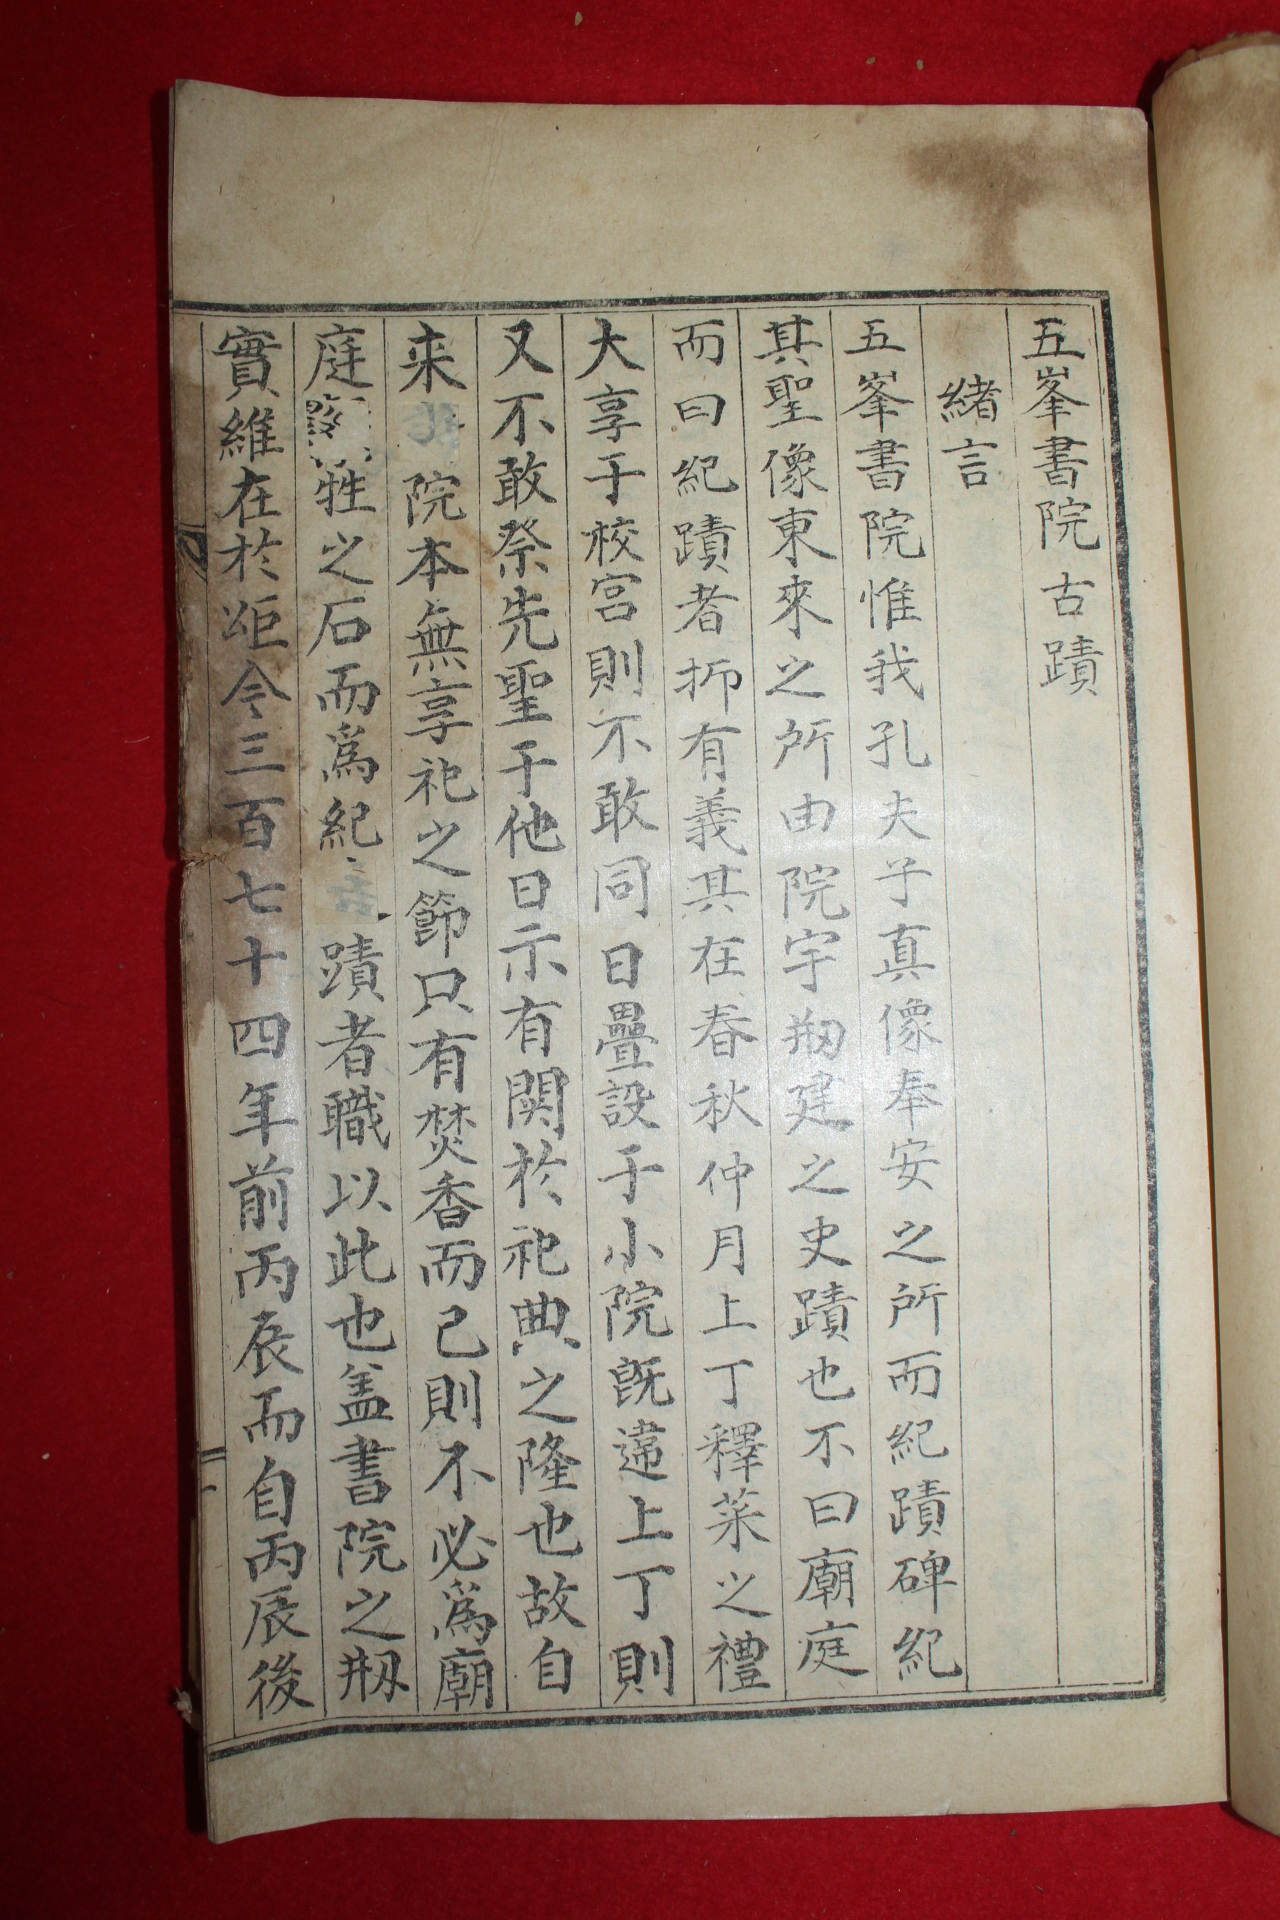 五峯書院古蹟
緒言
五峯書院惟我孔夫子真像奉安之所而紀蹟碑紀
其聖像東來之所由院宇刱建之史蹟也不曰廟庭
而曰紀蹟者抑有義其在春秋仲月上丁釋菜之禮
大享于校宮則不敢同日疊設于小院旣違上丁則
又不敢祭先聖于他日示有関於祀典之隆也故自
来院本無享祀之節只有焚香而已則不必爲廟
庭牲之石而爲紀蹟者職以此也盖書院之刱
實維在於岠今三百七十四年前丙辰而自丙辰後